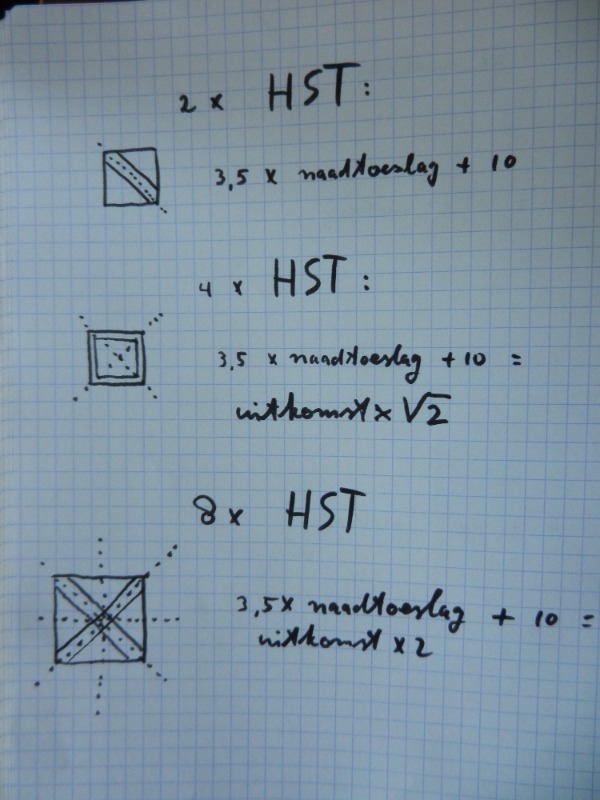 2 x HST:
3,5 x naadtoeslag + 10
4 x HST:
3,5 x naadtoeslag + 10 =
uitkomst x √2
8 x HST
3,5 x naadtoeslag + 10 =
uitkomst x 2